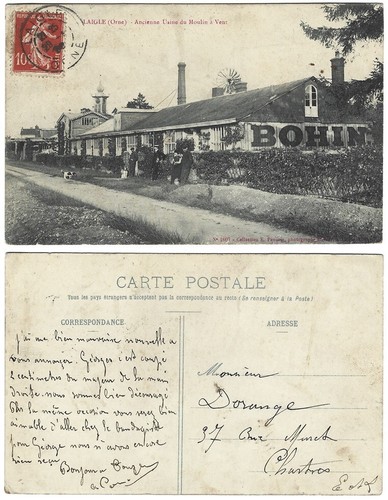 LAIGLE (Orne) - Ancienne Usine du Moulin à Vent
10
BOHIN
CARTE POSTALE
Tous les pays étrangers n'acceptent pas la correspondance au recto (Se renseigner à la Poste)
CORRESPONDANCE
ADRESSE
j'ai une bien mauvaise nouvelle a
vous annoncer. Georges s'est coupé
2 centimetres du majeur de la main
droite. nous sommes bien découragé
la même occasion vous serez bien
aimable d'aller chez le bandagiste
pour George nous n'avons encore
bien reçu
Bonjour a
Monsieur
Dorange
37 Rue Muret
Chartres
E et L